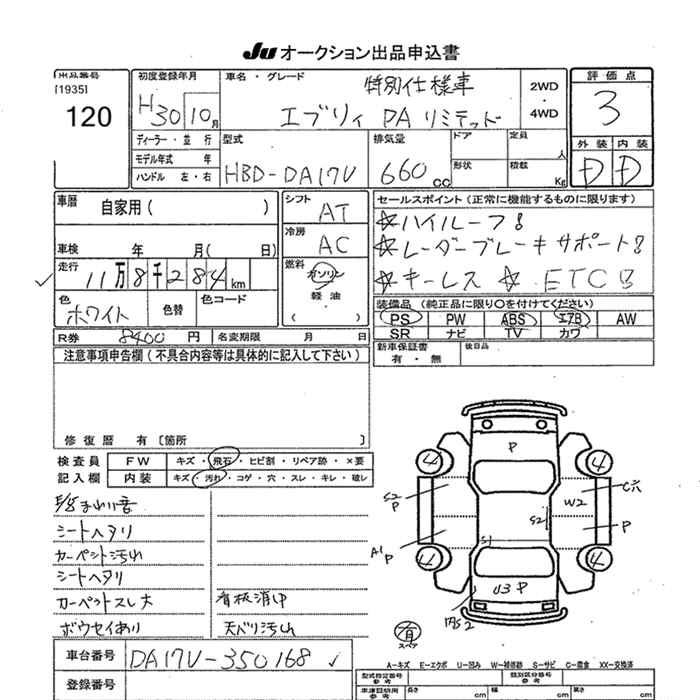 Ju オークション出品申込書
出品番号
[1935]
120
初度登録年月
H30 10月
車名・グレード
特別仕様車
エブリィ PA リミテッド
2WD
・
4WD
評価点
3
外装 内装
D D
ディーラー・並行
モデル年式 年
ハンドル 左・右
型式
HBD-DA17V
排気量
660cc
ドア
形状
定員
人
積載
Kg
車暦
自家用( )
シフト
AT
セールスポイント(正常に機能するものに限ります)
☆ハイルーフ!
☆レーダーブレーキサポート!
☆キーレス ☆ ETC
車検 年 月( 日)
冷房
AC
走行
11万8千284km
燃料
ガソリン
・
軽油
・
( )
色
ホワイト
色替
色コード
装備品(純正品に限り○を付けてください)
PS PW ABS エアB AW
SR ナビ TV カワ
R券 8400 円 名変期限 月 日
新車保証書
有・無
後日品
注意事項申告欄(不具合内容等は具体的に記入して下さい)
修復歴 有〔箇所 〕
検査員 FW キズ・飛石・ヒビ割・リペア跡・×要
記入欄 内装 キズ・汚れ・コゲ・穴・スレ・キレ・破レ
シートヘタリ
カーペット汚れ
シートヘタリ
カーペットスレ大
看板消中
ボウセイあり
天バリ汚れ
P
4 4
S2
P
W2
C穴
A1
P
S2
P
S1
4 4
U3 P
有
スペア
車台番号 DA17V-350168
登録番号
A-キズ E-エクボ U-凹み W-補修跡 S-サビ C-腐食 XX-交換済
型式指定番号
参考
類別区分番号
参考
車検証効用
参考
長さ cm
幅 cm
高さ cm